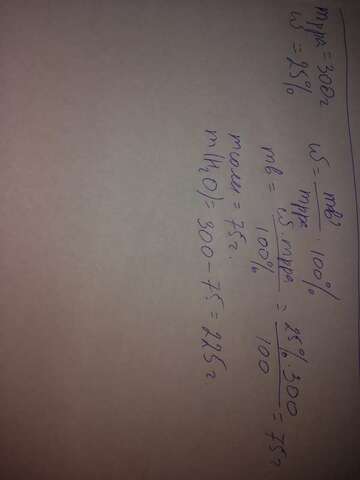 mр-ра = 300г
ω = 25%
ω = mв/mр-ра · 100%
mв = ω·mр-ра/100% = 25%·300/100 = 75г
mсоли = 75г.
m(H₂O) = 300 - 75 = 225г